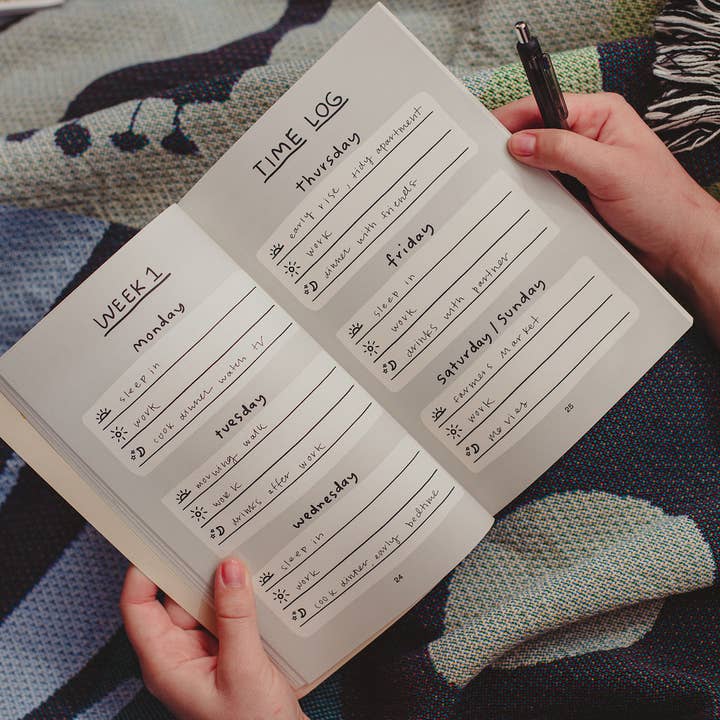 WEEK 1
monday
sleep in
work
cook dinner watch tv
tuesday
morning walk
work
drinks after work
wednesday
sleep in
work
cook dinner early bedtime
24
TIME LOG
thursday
early rise, tidy apartment
work
dinner with friends
friday
sleep in
work
drinks with partner
saturday/sunday
farmers market
work
movies
25